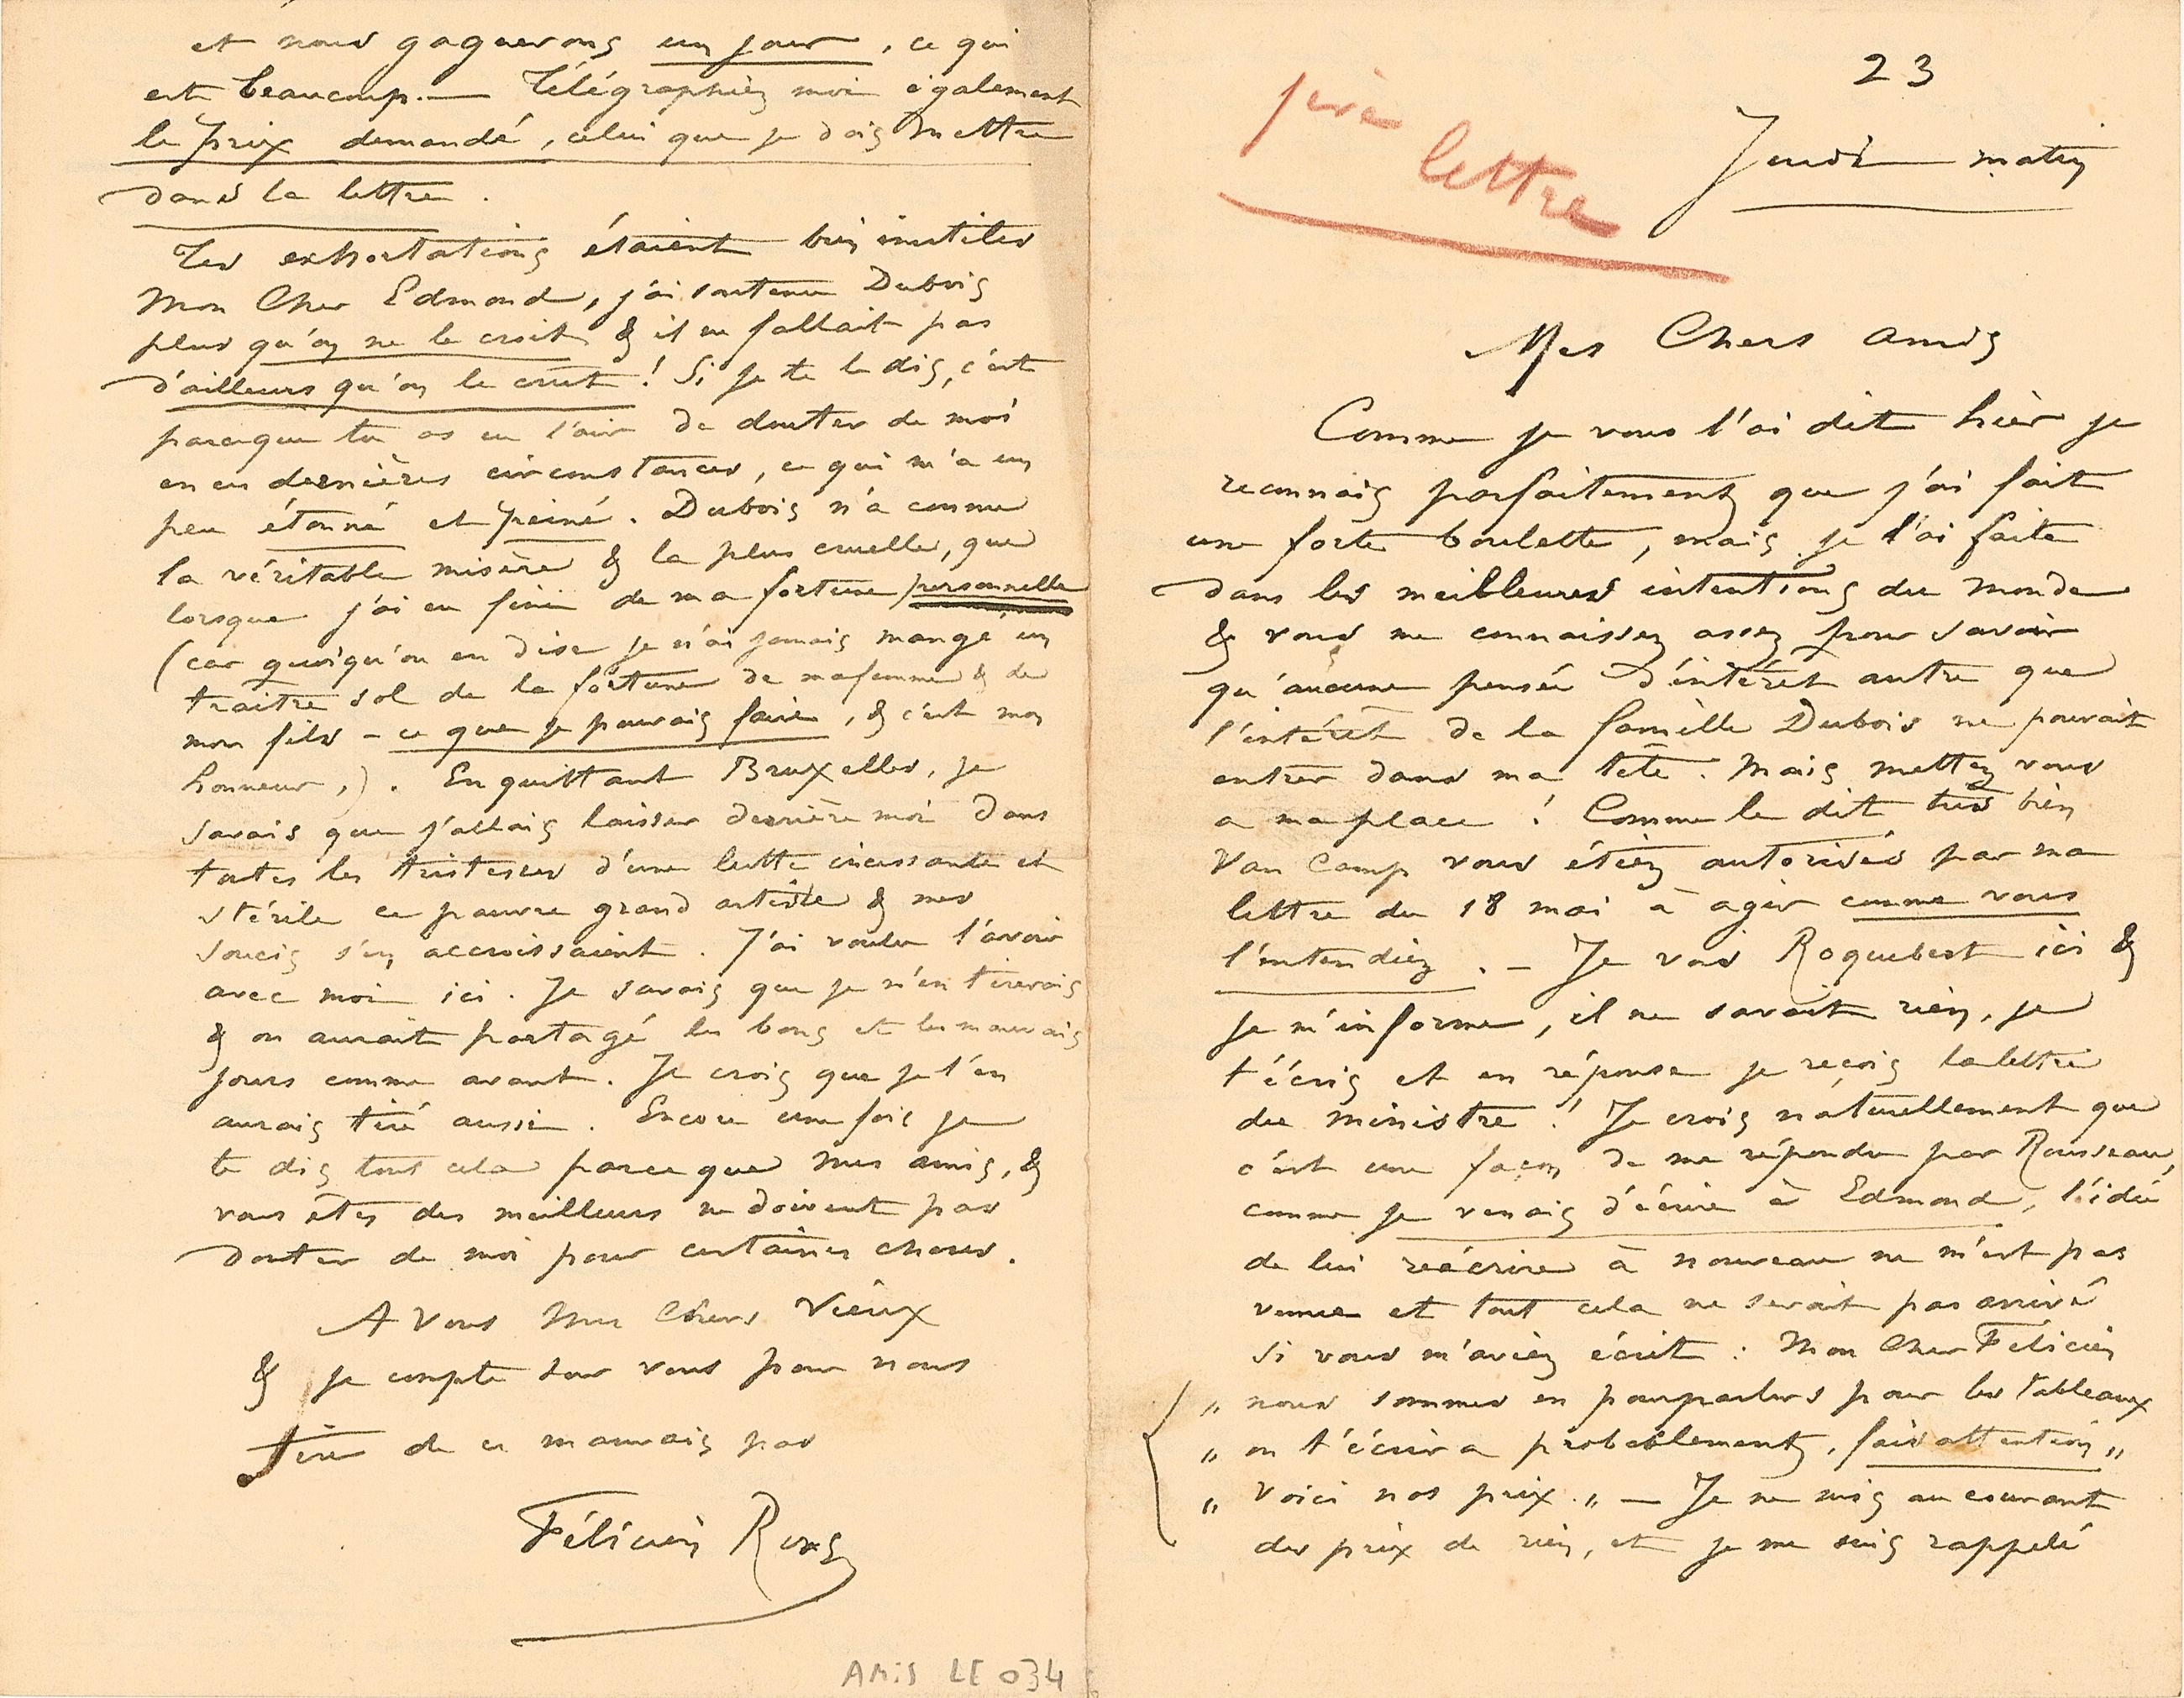 23
1ère lettre
Jeudi matin
Mes Chers amis
Comme je vous l'ai dit hier je
reconnais parfaitement que j'ai fait
une forte boulette, mais je l'ai faite
dans les meilleures intentions du monde
& vous me connaissez assez pour savoir
qu'aucune pensée d'intérêt autre que
l'intérêt de la famille Dubois ne pouvait
entrer dans ma tête. Mais mettez vous
a ma place ! Comme le dit très bien
Van Camp vous étiez autorisés par ma
lettre du 18 mai à agir comme vous
l'entendiez. – Je vois Roquebert ici &
je m'informe, il ne savait rien, je
t'écris et en réponse je reçois la lettre
du ministre ! Je crois naturellement que
c'est une façon de me répondre par Rousseau,
comme je venais d'écrire à Edmond, l'idée
de lui réécrire à nouveau ne m'est pas
venue et tout cela ne serait pas arrivé
si vous m'aviez écrit : Mon Cher Félicien
„ nous sommes en pourparlers pour les tableaux
„ on t'écrira probablement, fais attention „
„ Voici nos prix. „ — Je ne suis au courant
des prix de rien, et je me suis rappelé
et nous gagnerons un jour, ce qui
est beaucoup. — Télégraphiez moi également
le prix demandé, celui que je dois mettre
dans la lettre.
Tes exhortations étaient bien inutiles
Mon Cher Edmond, j'ai soutenu Dubois
plus qu'on ne le croit & il ne fallait pas
d'ailleurs qu'on le crut ! Si je te le dis, c'est
parceque tu as eu l'air de douter de moi
en ces dernières circonstances, ce qui m'a un
peu étonné et peiné. Dubois n'a connu
la véritable misère & la plus cruelle, que
lorsque j'ai eu fini de ma fortune personnelle
(car quoiqu'on en dise je n'ai jamais mangé un
traitre sol de la fortune de ma femme & de
mon fils – ce que je pouvais faire, & c'est mon
honneur,). En quittant Bruxelles, je
savais que j'allais laisser derrière moi dans
toutes les tristesses d'une lutte incessante et
stérile ce pauvre grand artiste & mes
soucis s'en accroissaient. J'ai voulu l'avoir
avec moi ici. Je savais que je m'en tirerais
& on aurait partagé les bons et les mauvais
jours comme avant. Je crois que je l'en
aurais tiré aussi. Encore une fois je
te dis tout cela parce que mes amis, &
vous êtes des meilleurs ne doivent pas
douter de moi pour certaines choses.
A vous mes Chers Vieux
& je compte sur vous pour nous
tirer de ce mauvais pas
Félicien Rops
AMIS LE 034